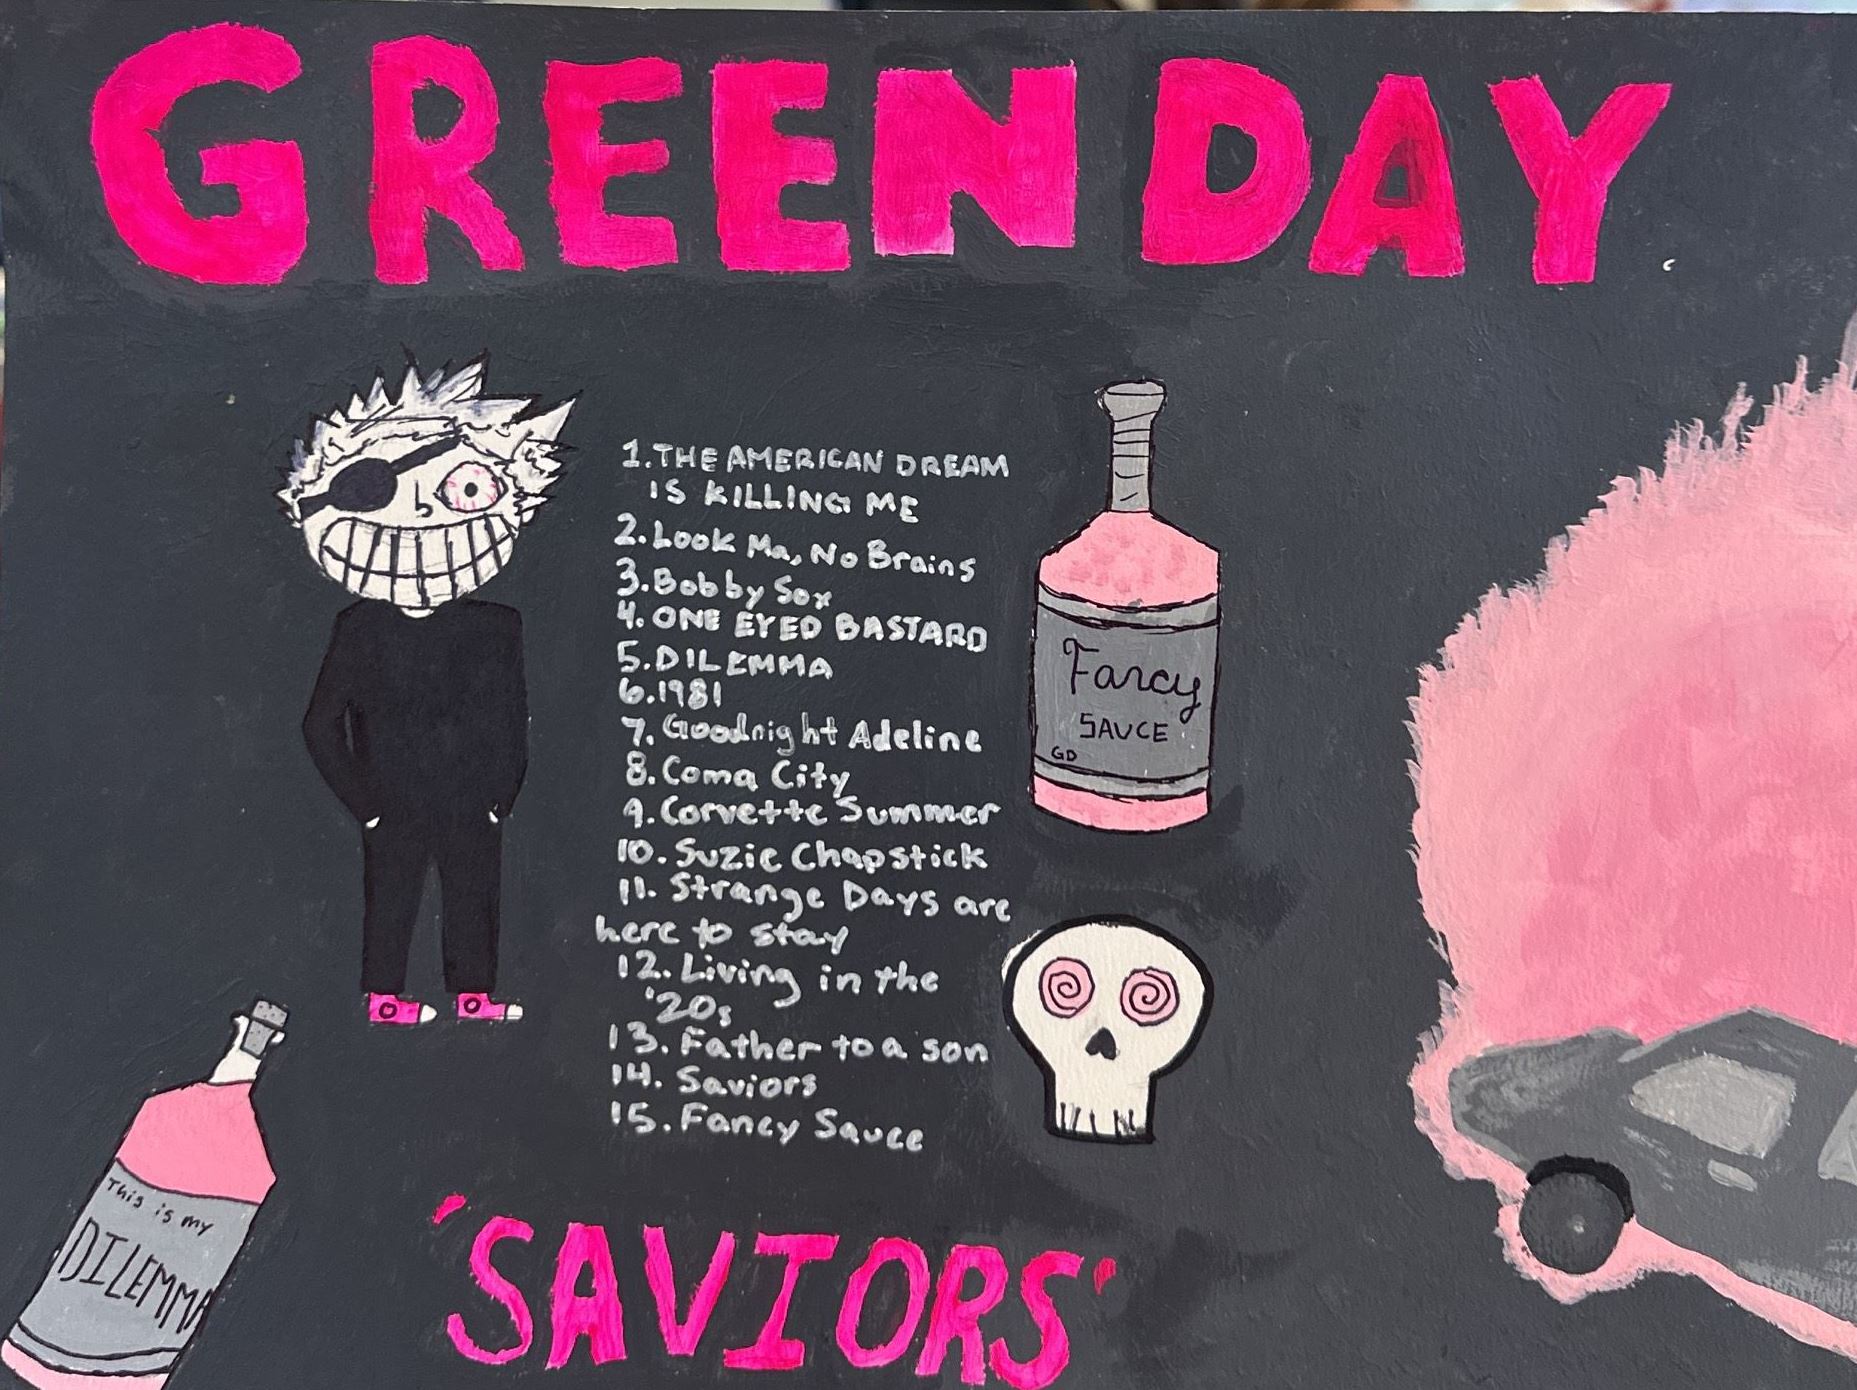 GREEN DAY
1. THE AMERICAN DREAM
IS KILLING ME
2. Look Ma, No Brains
3. Bobby Sox
4. ONE EYED BASTARD
5. DILEMMA
6. 1981
7. Goodnight Adeline
8. Coma City
9. Corvette Summer
10. Suzie Chapstick
11. Strange Days are
here to stay
12. Living in the
'20s
13. Father to a son
14. Saviors
15. Fancy Sauce
Fancy
SAUCE
GD
This is my
DILEMMA
'SAVIORS'